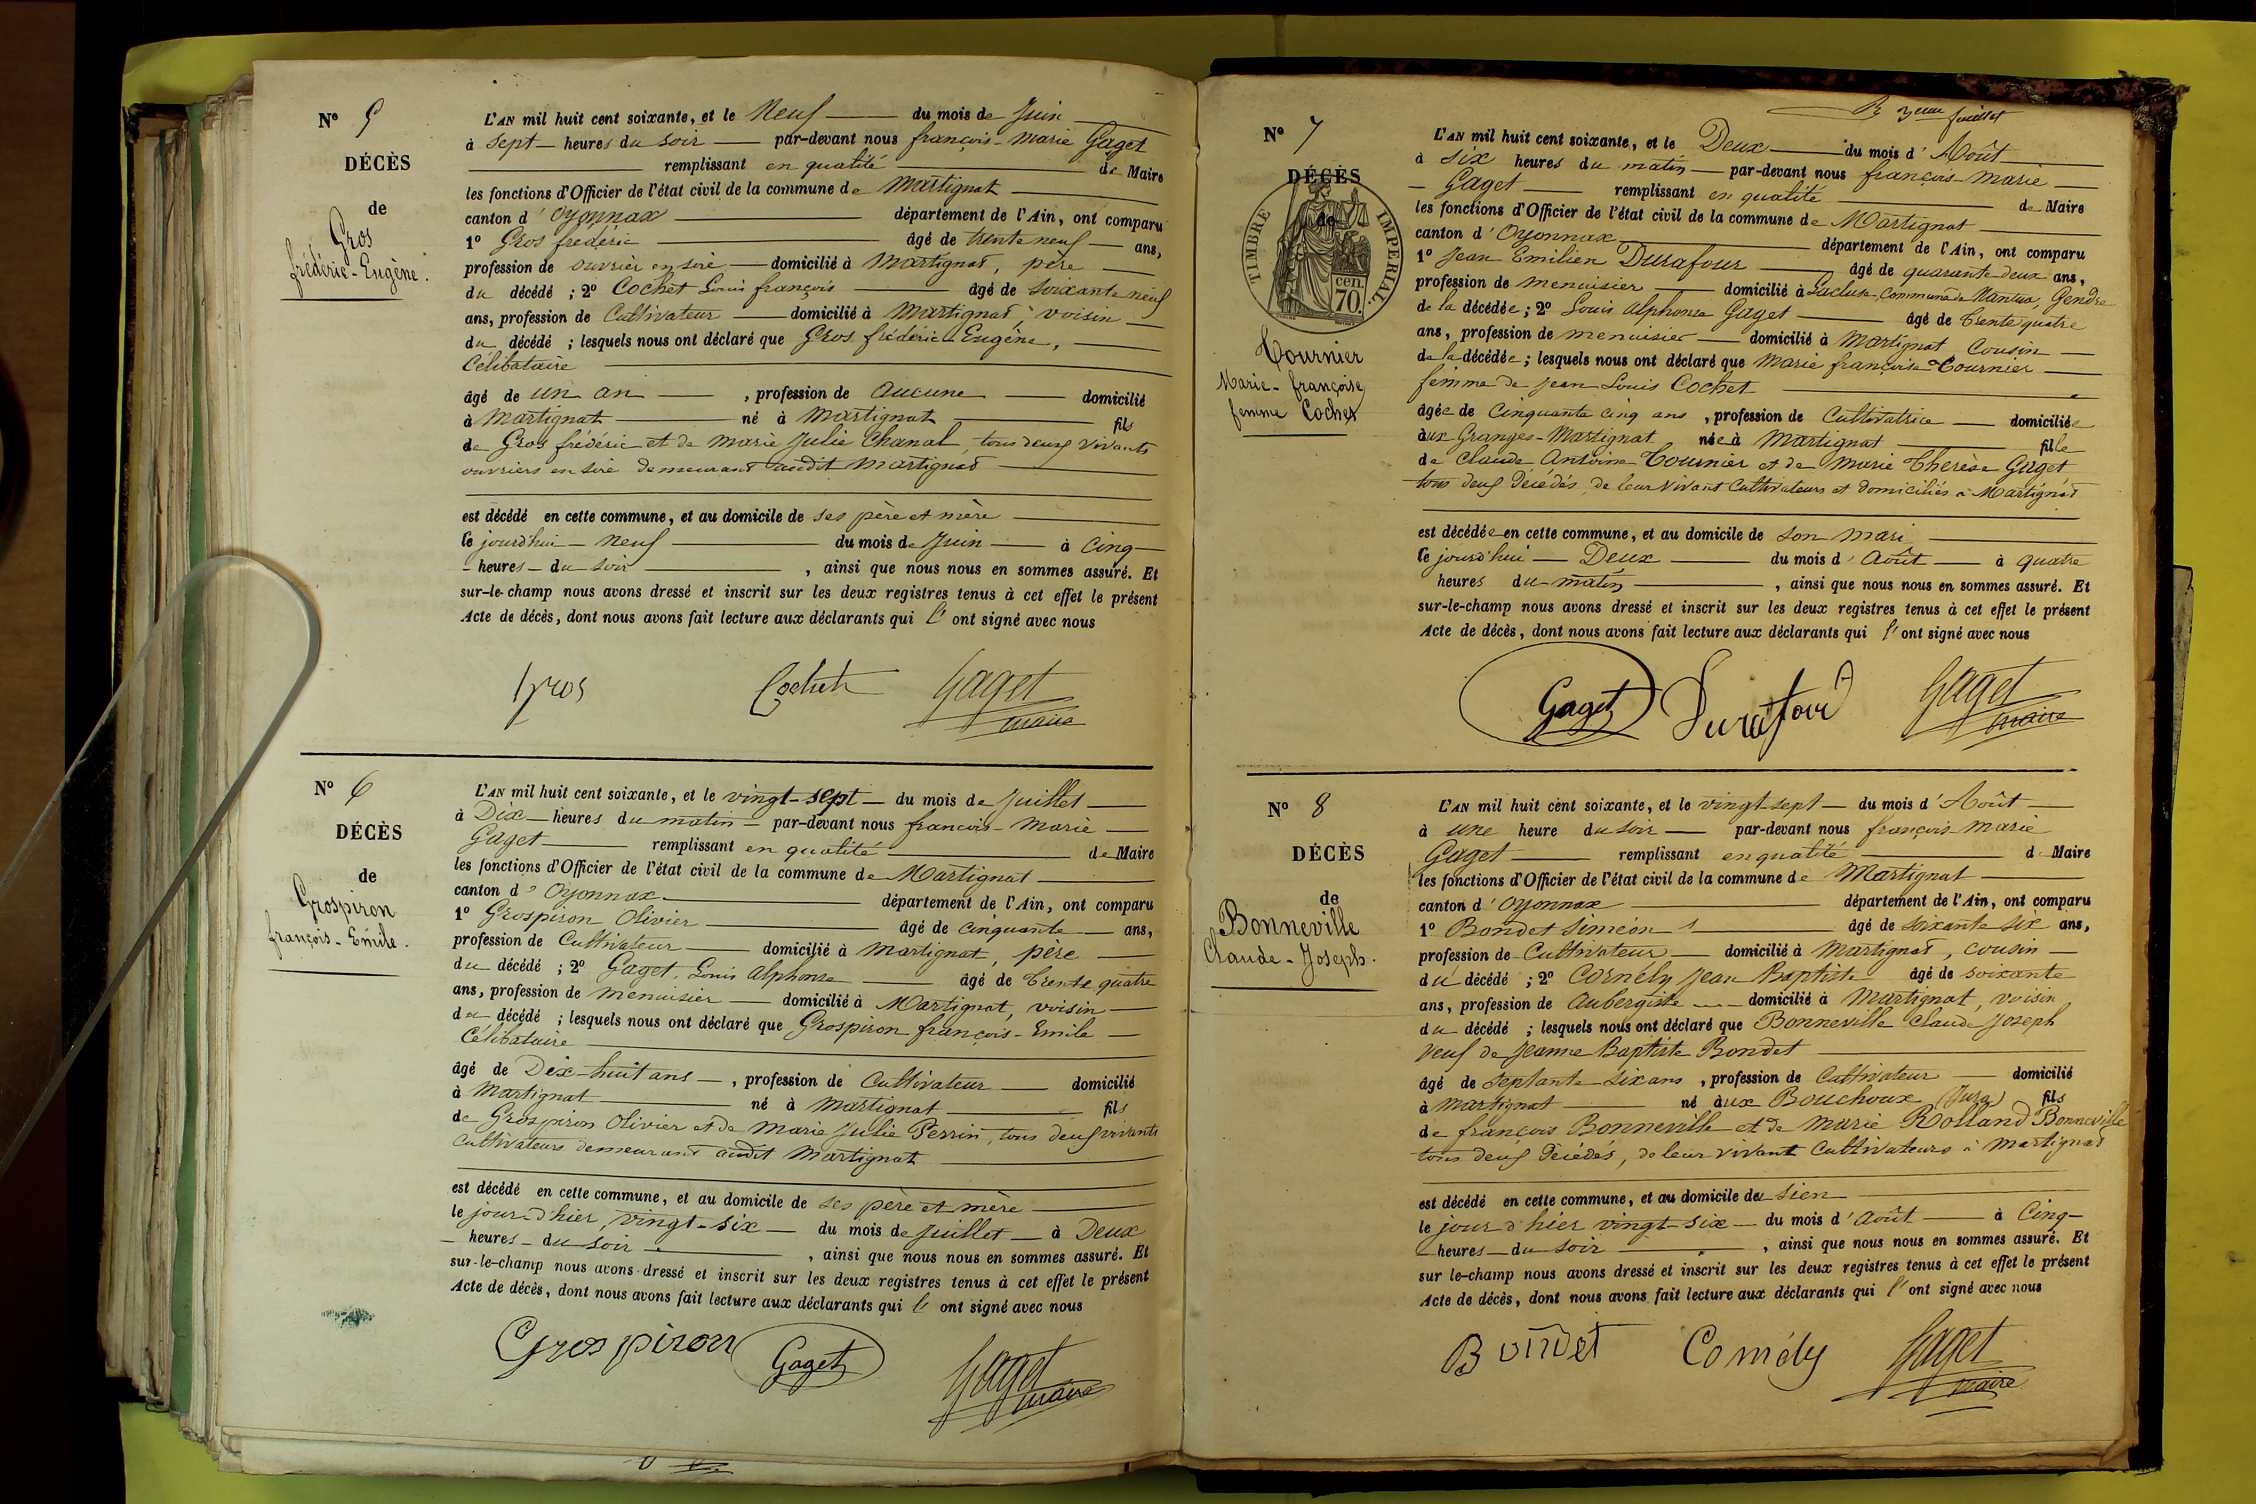 Nº 5
DÉCÈS
de
Gros
frédéric-Eugène.
L'AN mil huit cent soixante, et le Neuf du mois de Juin
à sept heures du soir par-devant nous françois-marie Gaget
remplissant en qualité de Maire
les fonctions d'Officier de l'état civil de la commune de Martignat
canton d'Oyonnax département de l'Ain, ont comparu
1º Gros frédéric âgé de trente neuf ans,
profession de ouvrier en soie domicilié à Martignat, père
du décédé ; 2º Cochet Louis françois âgé de soixante neuf
ans, profession de Cultivateur domicilié à Martignat, voisin
du décédé ; lesquels nous ont déclaré que Gros frédéric Eugène,
Célibataire
âgé de un an , profession de aucune domicilié
à Martignat né à Martignat fils
de Gros frédéric et de marie Julie Chanal, tous deux vivants
ouvriers en soie demeurant audit Martignat
est décédé en cette commune, et au domicile de ses père et mère
le jourd'hui neuf du mois de Juin à Cinq
heures du soir , ainsi que nous nous en sommes assuré. Et
sur-le-champ nous avons dressé et inscrit sur les deux registres tenus à cet effet le présent
Acte de décès, dont nous avons fait lecture aux déclarants qui l' ont signé avec nous
Gros Cochet Gaget
maire
Nº 6
DÉCÈS
de
Grospiron
françois-Emile.
L'AN mil huit cent soixante, et le vingt-sept du mois de Juillet
à Dix heures du matin par-devant nous françois-marie
Gaget remplissant en qualité de Maire
les fonctions d'Officier de l'état civil de la commune de Martignat
canton d'Oyonnax département de l'Ain, ont comparu
1º Grospiron Olivier âgé de cinquante ans,
profession de Cultivateur domicilié à Martignat, père
du décédé ; 2º Gaget Louis alphonse âgé de trente quatre
ans, profession de menuisier domicilié à Martignat, voisin
du décédé ; lesquels nous ont déclaré que Grospiron françois-Emile
Célibataire
âgé de Dix-huit ans , profession de Cultivateur domicilié
à Martignat né à Martignat fils
de Grospiron Olivier et de Marie Julie Perrin, tous deux vivants
cultivateurs demeurant audit Martignat
est décédé en cette commune, et au domicile de ses père et mère
le jour d'hier, vingt-six du mois de Juillet à Deux
heures du soir , ainsi que nous nous en sommes assuré. Et
sur-le-champ nous avons dressé et inscrit sur les deux registres tenus à cet effet le présent
Acte de décès, dont nous avons fait lecture aux déclarants qui l' ont signé avec nous
Grospiron Gaget Gaget
maire
3eme feuillet
Nº 7
DÉCÈS
de
TIMBRE IMPERIAL.
70 cen.
Tournier
Marie-françoise
femme Cochet
L'AN mil huit cent soixante, et le Deux du mois d'Août
à six heures du matin par-devant nous françois-marie
Gaget remplissant en qualité de Maire
les fonctions d'Officier de l'état civil de la commune de Martignat
canton d'Oyonnax département de l'Ain, ont comparu
1º Jean Emilien Durafour âgé de quarante-deux ans,
profession de menuisier domicilié à Lacluse, Commune de Nantua, Gendre
de la décédée ; 2º Louis alphonse Gaget âgé de trente quatre
ans, profession de menuisier domicilié à Martignat Cousin
de la décédée ; lesquels nous ont déclaré que Marie françoise Tournier
femme de Jean Louis Cochet
âgée de Cinquante cinq ans , profession de Cultivatrice domiciliée
aux Granges-Martignat née à Martignat fille
de claude Antoine Tournier et de Marie Thérèse Gaget
tous deux décédés, de leur vivant Cultivateurs et domiciliés à Martignat
est décédée en cette commune, et au domicile de son mari
le jourd'hui Deux du mois d'Août à quatre
heures du matin , ainsi que nous nous en sommes assuré. Et
sur-le-champ nous avons dressé et inscrit sur les deux registres tenus à cet effet le présent
Acte de décès, dont nous avons fait lecture aux déclarants qui l' ont signé avec nous
Gaget Durafour Gaget
maire
Nº 8
DÉCÈS
de
Bonneville
Claude-Joseph.
L'AN mil huit cent soixante, et le vingt sept du mois d'Août
à une heure du soir par-devant nous françois-Marie
Gaget remplissant en qualité de Maire
les fonctions d'Officier de l'état civil de la commune de Martignat
canton d'Oyonnax département de l'Ain, ont comparu
1º Bondet siméon âgé de soixante six ans,
profession de Cultivateur domicilié à Martignat, cousin
du décédé ; 2º Cornély Jean Baptiste âgé de soixante
ans, profession de aubergiste domicilié à Martignat, voisin
du décédé ; lesquels nous ont déclaré que Bonneville Claude Joseph
veuf de Jeanne Baptiste Bondet
âgé de septante-six ans , profession de Cultivateur domicilié
à Martignat né aux Bouchoux (Jura) fils
de françois Bonneville et de Marie Rolland Bonneville
tous deux décédés, de leur vivant Cultivateurs à Martignat
est décédé en cette commune, et au domicile du sien
le jour d'hier vingt-six du mois d'août à Cinq
heures du soir , ainsi que nous nous en sommes assuré. Et
sur le-champ nous avons dressé et inscrit sur les deux registres tenus à cet effet le présent
Acte de décès, dont nous avons fait lecture aux déclarants qui l' ont signé avec nous
Bondet Cornély Gaget
maire